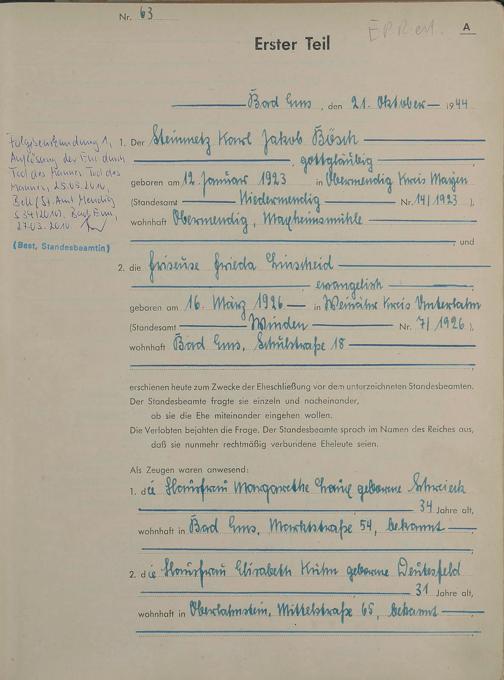 Nr. 63
A
Erster Teil
Bad Ems, den 21. Oktober 1944
Folgebeurkundung 1,
Auflösung der Ehe durch
Tod des Mannes. Tod des
Mannes, 25.03.2010,
Bell (St.Amt Mendig
S 34/2010). Bad Ems,
27.03.2010
(Best, Standesbeamtin)
1. Der Steinmetz Karl Jakob Bösch
, gottgläubig
geboren am 12. Januar 1923 in Obermendig Kreis Mayen
(Standesamt Niedermendig Nr. 14/1923),
wohnhaft Obermendig, Mayheimsmühle
, und
2. die Friseuse Frieda Linscheid
, evangelisch
geboren am 16. März 1926 in Weinähr Kreis Unterlahn
(Standesamt Winden Nr. 7/1926),
wohnhaft Bad Ems, Schulstraße 18
erschienen heute zum Zwecke der Eheschließung vor dem unterzeichneten Standesbeamten.
Der Standesbeamte fragte sie einzeln und nacheinander,
ob sie die Ehe miteinander eingehen wollen.
Die Verlobten bejahten die Frage. Der Standesbeamte sprach im Namen des Reiches aus,
daß sie nunmehr rechtmäßig verbundene Eheleute seien.
Als Zeugen waren anwesend:
1. die Hausfrau Margarethe geborene Schreieck
34 Jahre alt,
wohnhaft in Bad Ems, Marktstraße 54, bekannt
2. die Hausfrau Elisabeth Kühn geborene Deutesfeld
31 Jahre alt,
wohnhaft in Oberlahnstein, Mittelstraße 65, bekannt